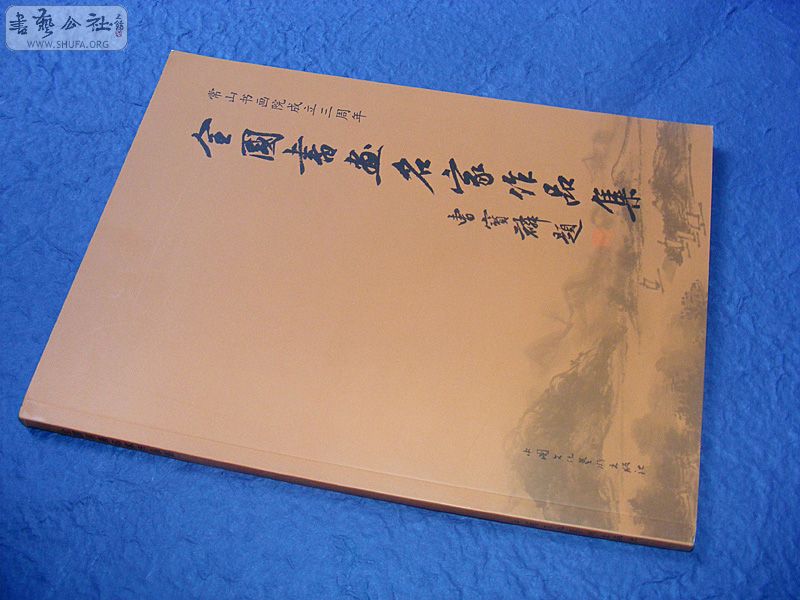 書藝公社
WWW.SHUFA.ORG
常山书画院成立三周年
全國書畫名家作品集
曹寶麟題
中国文化艺术出版社